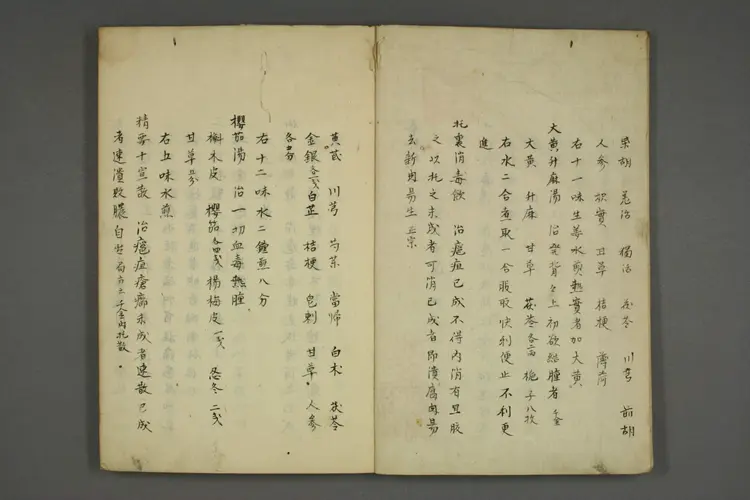 柴胡 羌活 獨活 茯苓 川芎 前胡
人参 枳實 甘草 桔梗 薄荷
右十一味生姜水煎熱實者加大黄
大黄升麻湯 治発背多上初欲結腫者 千金
大黄 升麻 甘草 茯苓各 梔子八枚
右水二合煮取一合服取快利便止不利更
進
托裏消毒飲 治瘡疽已成不得内消宜服
之以托之未成者可消已成者即潰腐肉易
去新肉易生 正宗
黄芪 川芎 芍薬 當帰 白朮 茯苓
金銀各一戔 白芷 桔梗 皂刺 甘草 人参
各五分
右十二味水二鍾煎八分
櫻茹湯 治一切血毒熱腫
槲木皮 櫻茹各四戔 楊梅皮一戔 忍冬二戔
甘草五分
右五味水煎
精要十宣散 治瘡疽瘡癤未成者速散已成
者速潰敗膿自 千金内托散